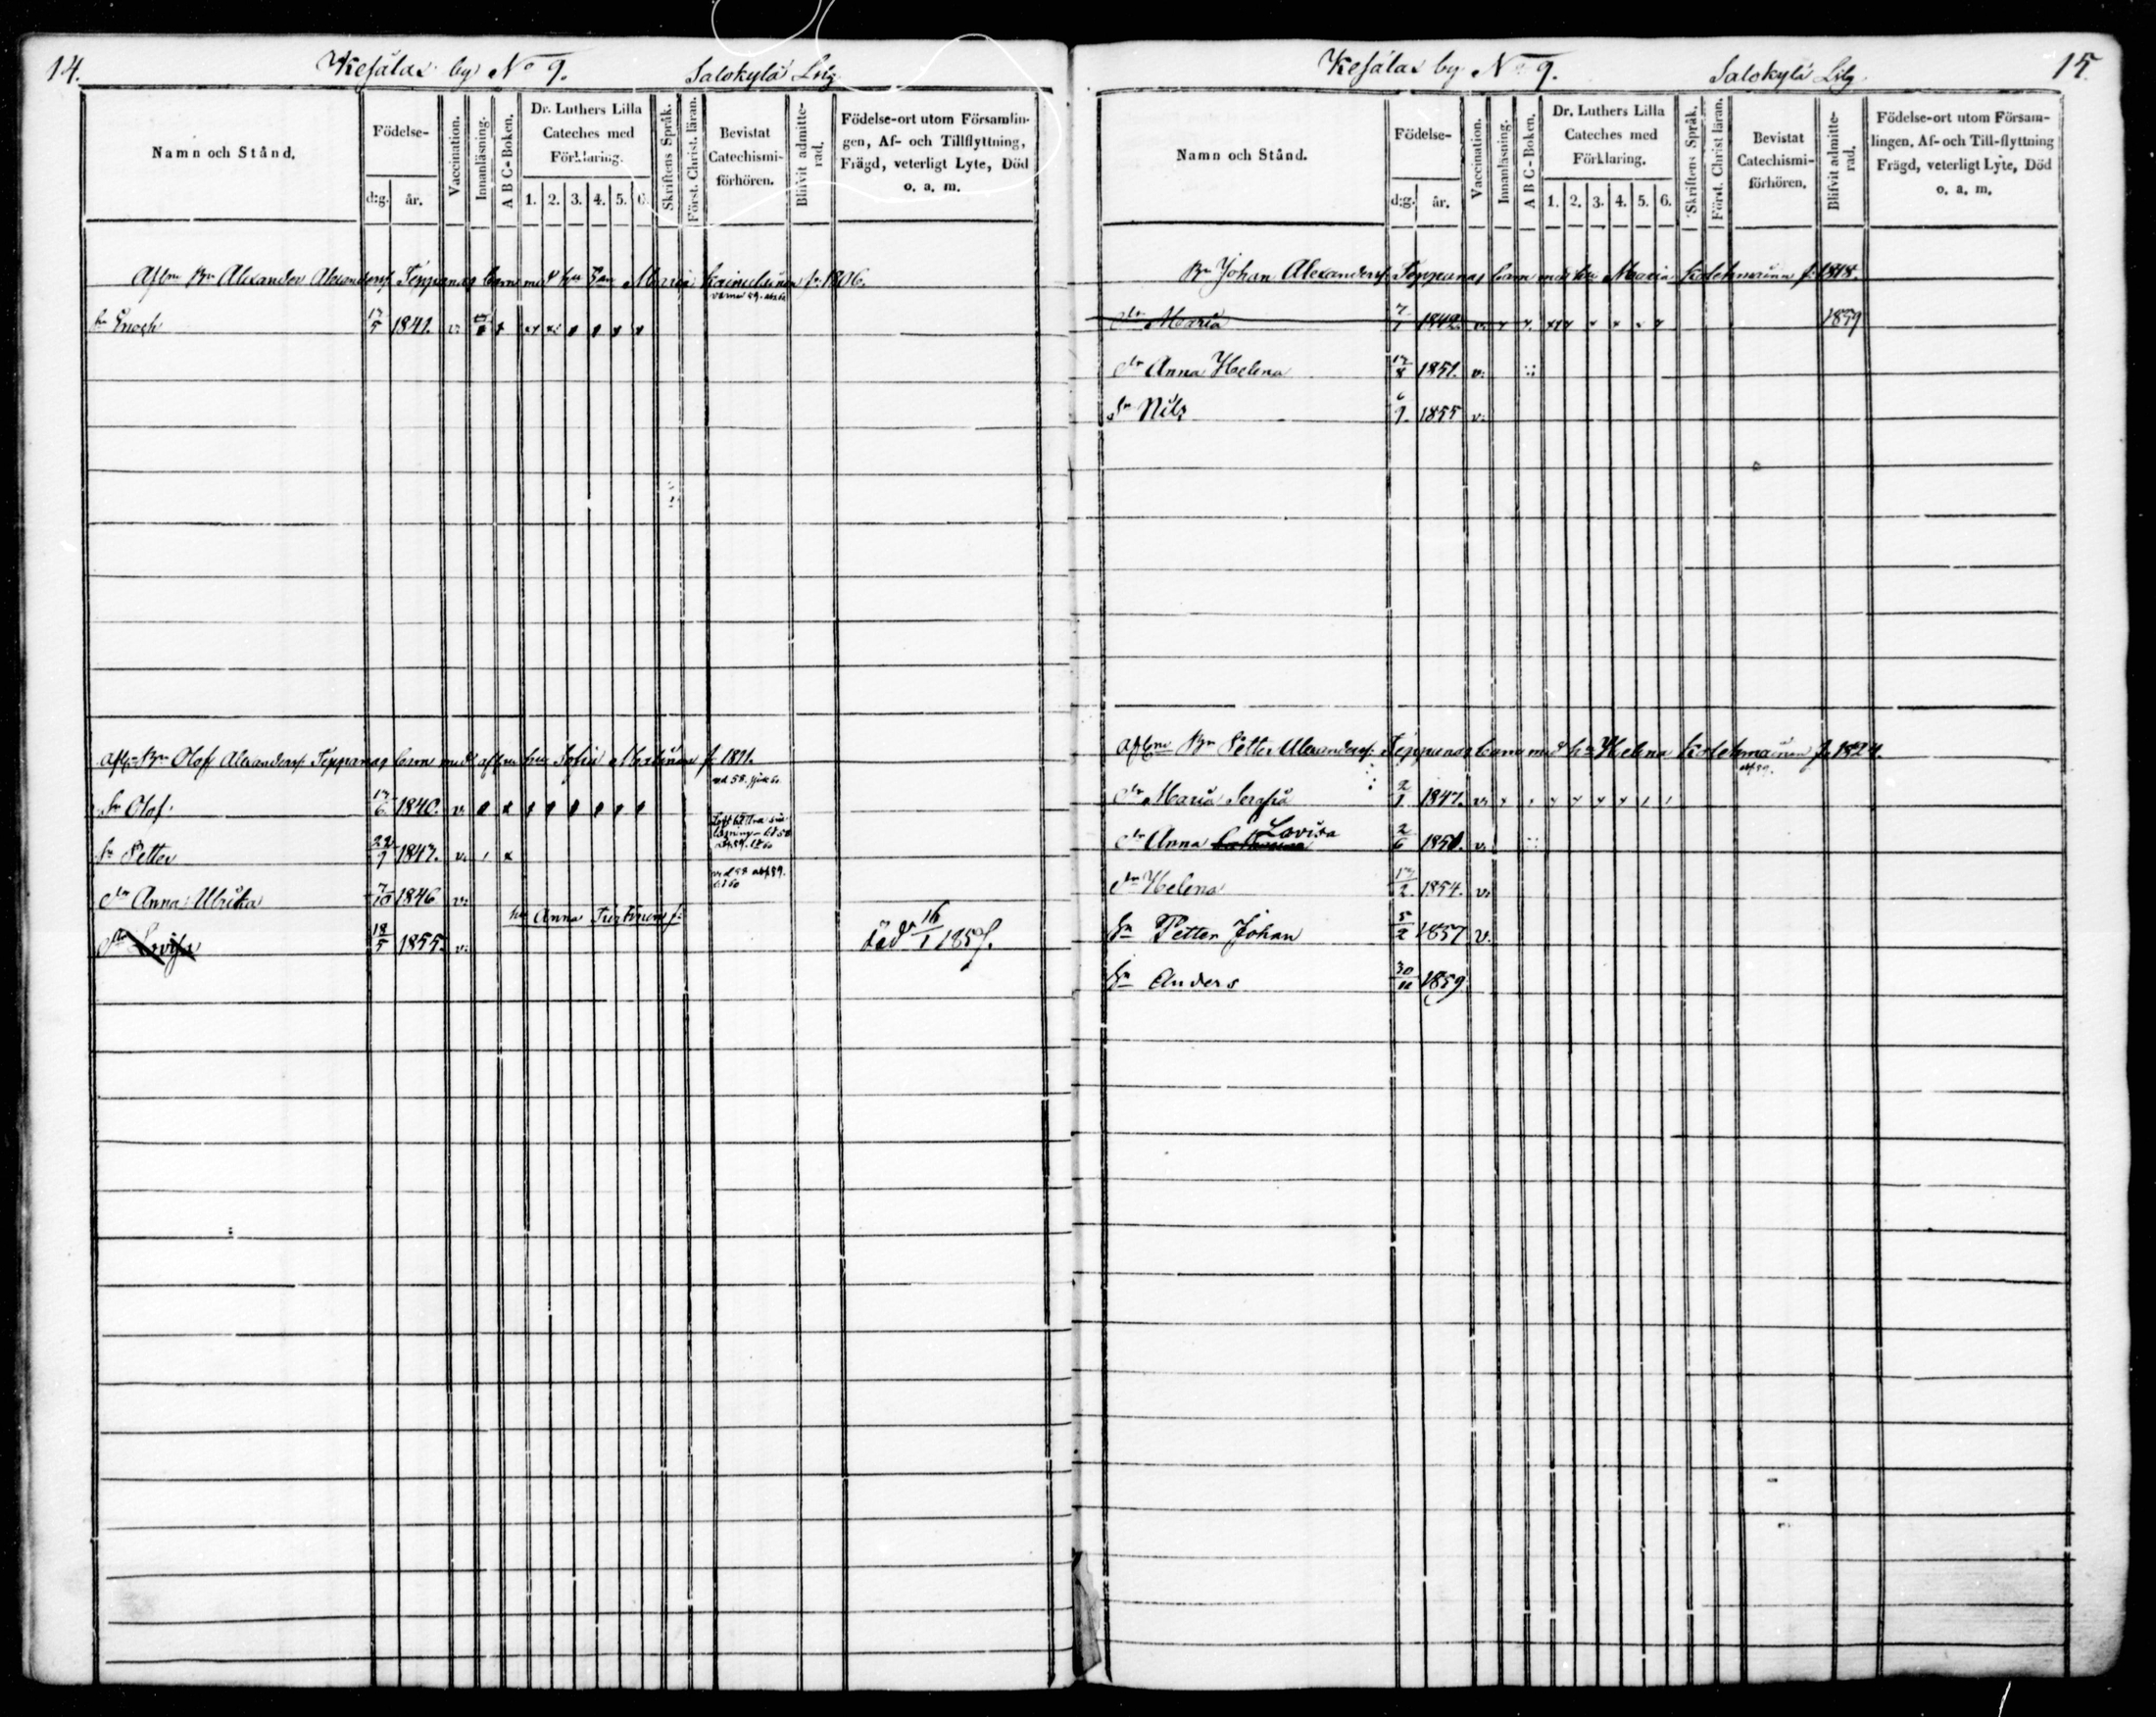 14.
Kesälax by No 9.
Salokylä Lilg
Namn och Stånd.
Födelse-
d:g.
år.
Vaccination.
Innanläsning.
A B C-Boken.
Dr. Luthers Lilla Cateches med Förklaring.
1. 2. 3. 4. 5. 6.
Skriftens Språk.
Först. Christ. läran.
Bevistat Catechismi-förhören.
Blifvit admitte-rad.
Födelse-ort utom Församlin-gen, Af- och Tillflyttning, Frägd, veterligt Lyte, Död o. a. m.
Aflne Bn Alexander Alexandersf. Teppanas barn med hu Maria f. 1806.
Sn Enogh 17/5 1841. v.
Afln Bn Olof Alexandersf. Teppanas barn med aflna hu Sofia Martinen f. 1811.
Sn Olof 17/6 1840. v.
Sn Petter 22/9 1847. v.
Dr Anna Ulrika 7/10 1846 v.
hu Anna Turtinen f.
Dr Lovisa 18/5 1855. v. död 16/1 1857.
15
Kesälax by No 9.
Salokylä Lilg.
Namn och Stånd.
Födelse-
d:g.
år.
Vaccination.
Innanläsning.
A B C-Boken.
Dr. Luthers Lilla Cateches med Förklaring.
1. 2. 3. 4. 5. 6.
Skriftens Språk.
Först. Christ läran.
Bevistat Catechismi-förhören.
Blifvit admitte-rad.
Födelse-ort utom Försam-lingen, Af- och Till-flyttning Frägd, veterligt Lyte, Död o. a. m.
Bn Johan Alexandersf. Teppanas barn med hu Maria Kolehmainen f. 1818.
Dr Maria 7/1 1842. v. 1859
Dr Anna Helena 17/8 1851. v.
Sn Nils 6/9. 1855 v.
Aflne Bn Petter Alexandersf. Teppanas barn med hu Helena Kolehmainen f. 1824.
Dr Maria Serafia 2/1 1847. v.
Dr Anna Lovisa 2/6 1850. v.
Dr Helena 17/2 1854. v.
Sn Petter Johan 5/2 1857 v.
Sn Anders 30/11 1859